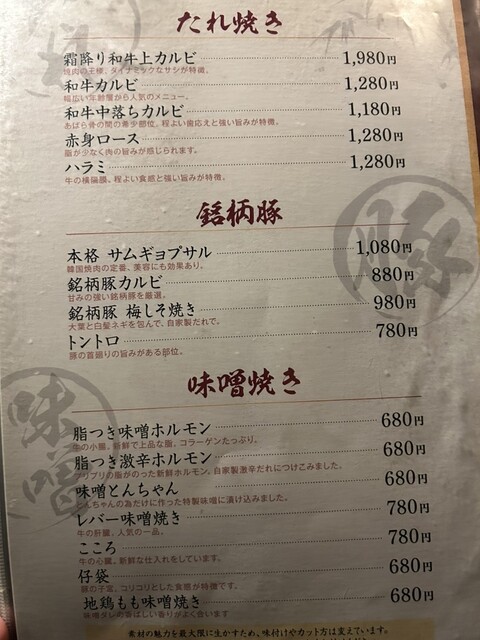 たれ焼き
霜降り和牛上カルビ 1,980円
焼肉の王様、ダイナミックなサシが特徴。
和牛カルビ 1,280円
幅広い年齢層から人気のメニュー。
和牛中落ちカルビ 1,180円
あばら骨の間の希少部位。程よい歯応えと強い旨みが特徴。
赤身ロース 1,280円
脂が少なく肉の旨みが感じられます。
ハラミ 1,280円
牛の横隔膜、程よい食感と強い旨みが特徴。
豚
銘柄豚
本格 サムギョプサル 1,080円
韓国焼肉の定番、美容にも効果あり。
銘柄豚カルビ 880円
甘みの強い銘柄豚を厳選。
銘柄豚 梅しそ焼き 980円
大葉と白髪ネギを包んで、自家製だれで。
トントロ 780円
豚の首振りの旨みがある部位。
味噌
味噌焼き
脂つき味噌ホルモン 680円
牛の小腸。新鮮で上品な脂、コラーゲンたっぷり。
脂つき激辛ホルモン 680円
プリプリの脂がのった新鮮ホルモン。自家製激辛だれにつけこみました。
味噌とんちゃん 680円
とんちゃんの為だけに作った特製味噌に漬け込みました。
レバー味噌焼き 780円
牛の肝臓、人気の一品。
こころ 780円
牛の心臓、新鮮な仕入れをしています。
仔袋 680円
豚の子宮、コリコリとした食感が特徴です。
地鶏もも味噌焼き 680円
味噌ダレの香ばしい香りがよく合います
素材の魅力を最大限に生かすため、味付けやカット方は変えています。